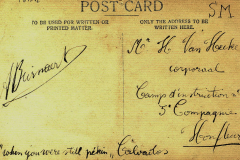 POST-CARD
S.M
TO BE USED FOR WRITTEN OR PRINTED MATTER.
ONLY THE ADDRESS TO BE WRITTEN HERE.
Mr H. Van Hecke
corporal
Camp d'instruction
5e Compagnie
Honfleur
Calvados
"when you were still